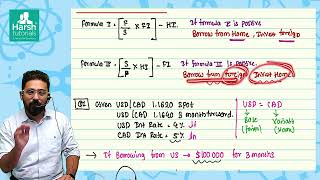 Harsh
Tutorials
Formula I = [ F/S × FI ] - HI.
If formula I is positive
Borrow from Home, Invest Foreign
Formula II = [ S/F × HI ] - FI
If formula II is positive.
Borrow from foreign, Invest Home
Given USD/CAD 1.1620 SPOT
USD = CAD
USD/CAD 1.1640 3 months forward.
USD Int Rate = 4%
CAD Int Rate = 5%
→ If Borrowing from US → $100000 for 3 months